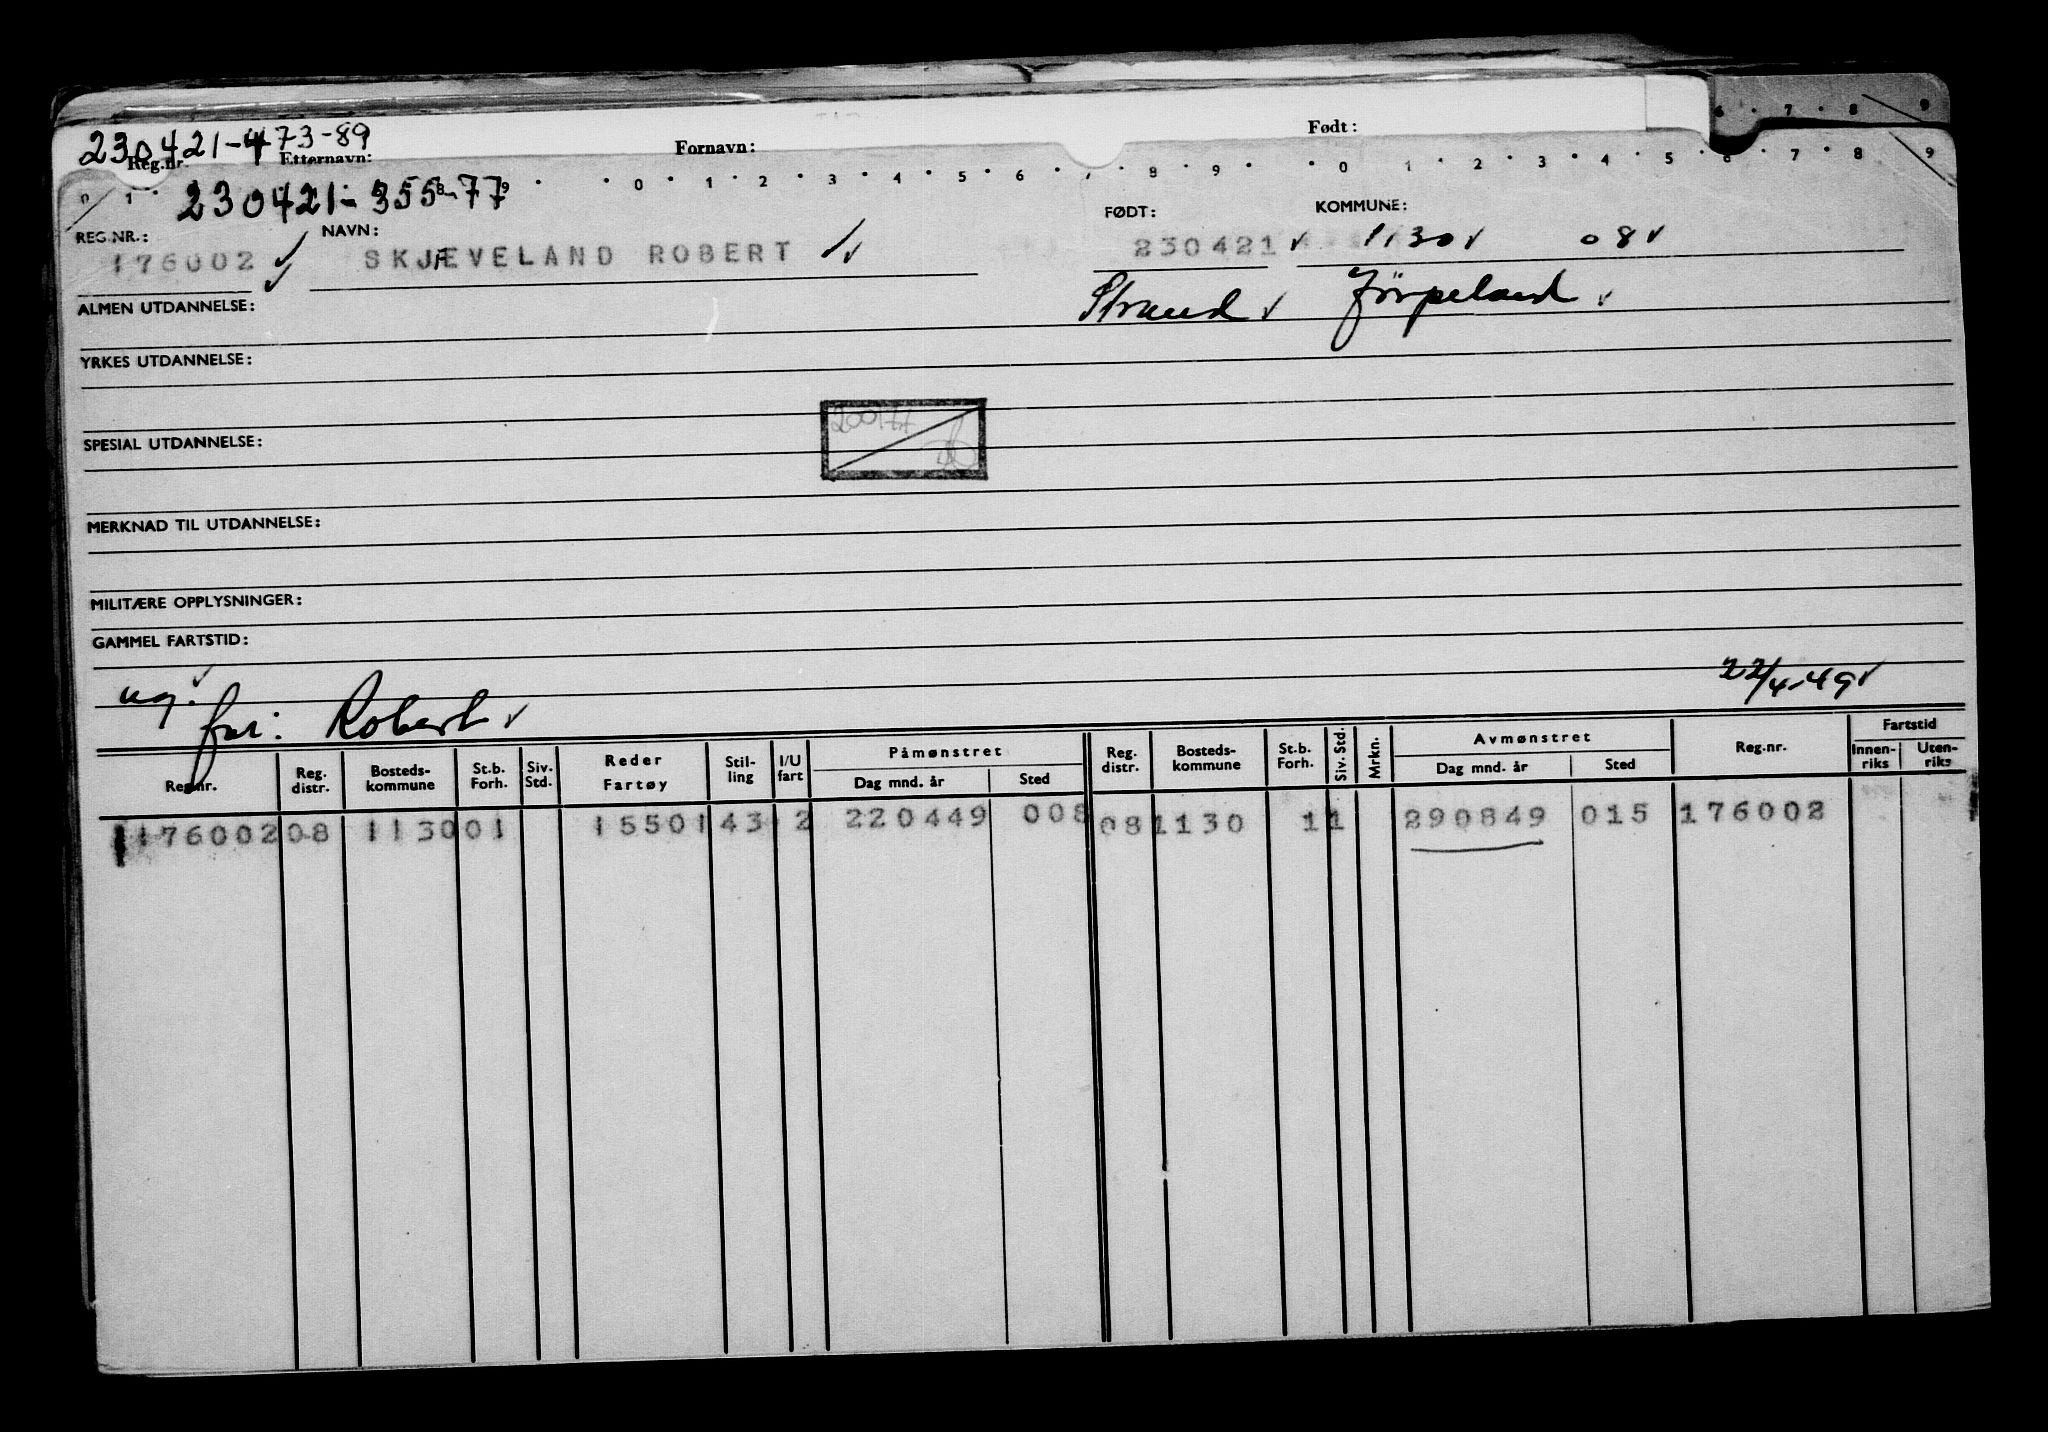 230421-473-89
Reg.nr. Etternavn: Fornavn: Født:
6 7 8 9
0 1 8 9 0 1 2 3 4 5 6 7 8 9 0 1 2 3 4 5 6 7 8 9
230421-355-77
REG.NR.: NAVN: FØDT: KOMMUNE:
176002 SKJÆVELAND ROBERT 230421 1130 08
Strand Jörpeland
ALMEN UTDANNELSE:
YRKES UTDANNELSE:
200177
SPESIAL UTDANNELSE:
MERKNAD TIL UTDANNELSE:
MILITÆRE OPPLYSNINGER:
GAMMEL FARTSTID:
ug. 22/4-49
far: Robert
Reg.nr. Reg. distr. Bosteds-kommune St.b. Forh. Siv. Std. Reder Fartøy Stil-ling I/U fart Påmønstret Dag mnd. år Sted Reg. distr. Bosteds-kommune St.b. Forh. Siv. Std. Mrkn. Avmønstret Dag mnd. år Sted Reg.nr. Fartstid Innen-riks Uten-riks
176002 08 1130 01 15501 43 2 220449 008 08 1130 1 1 290849 015 176002